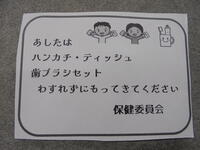 あしたは
ハンカチ・ティッシュ
歯ブラシセット
わすれずにもってきてください
保健委員会